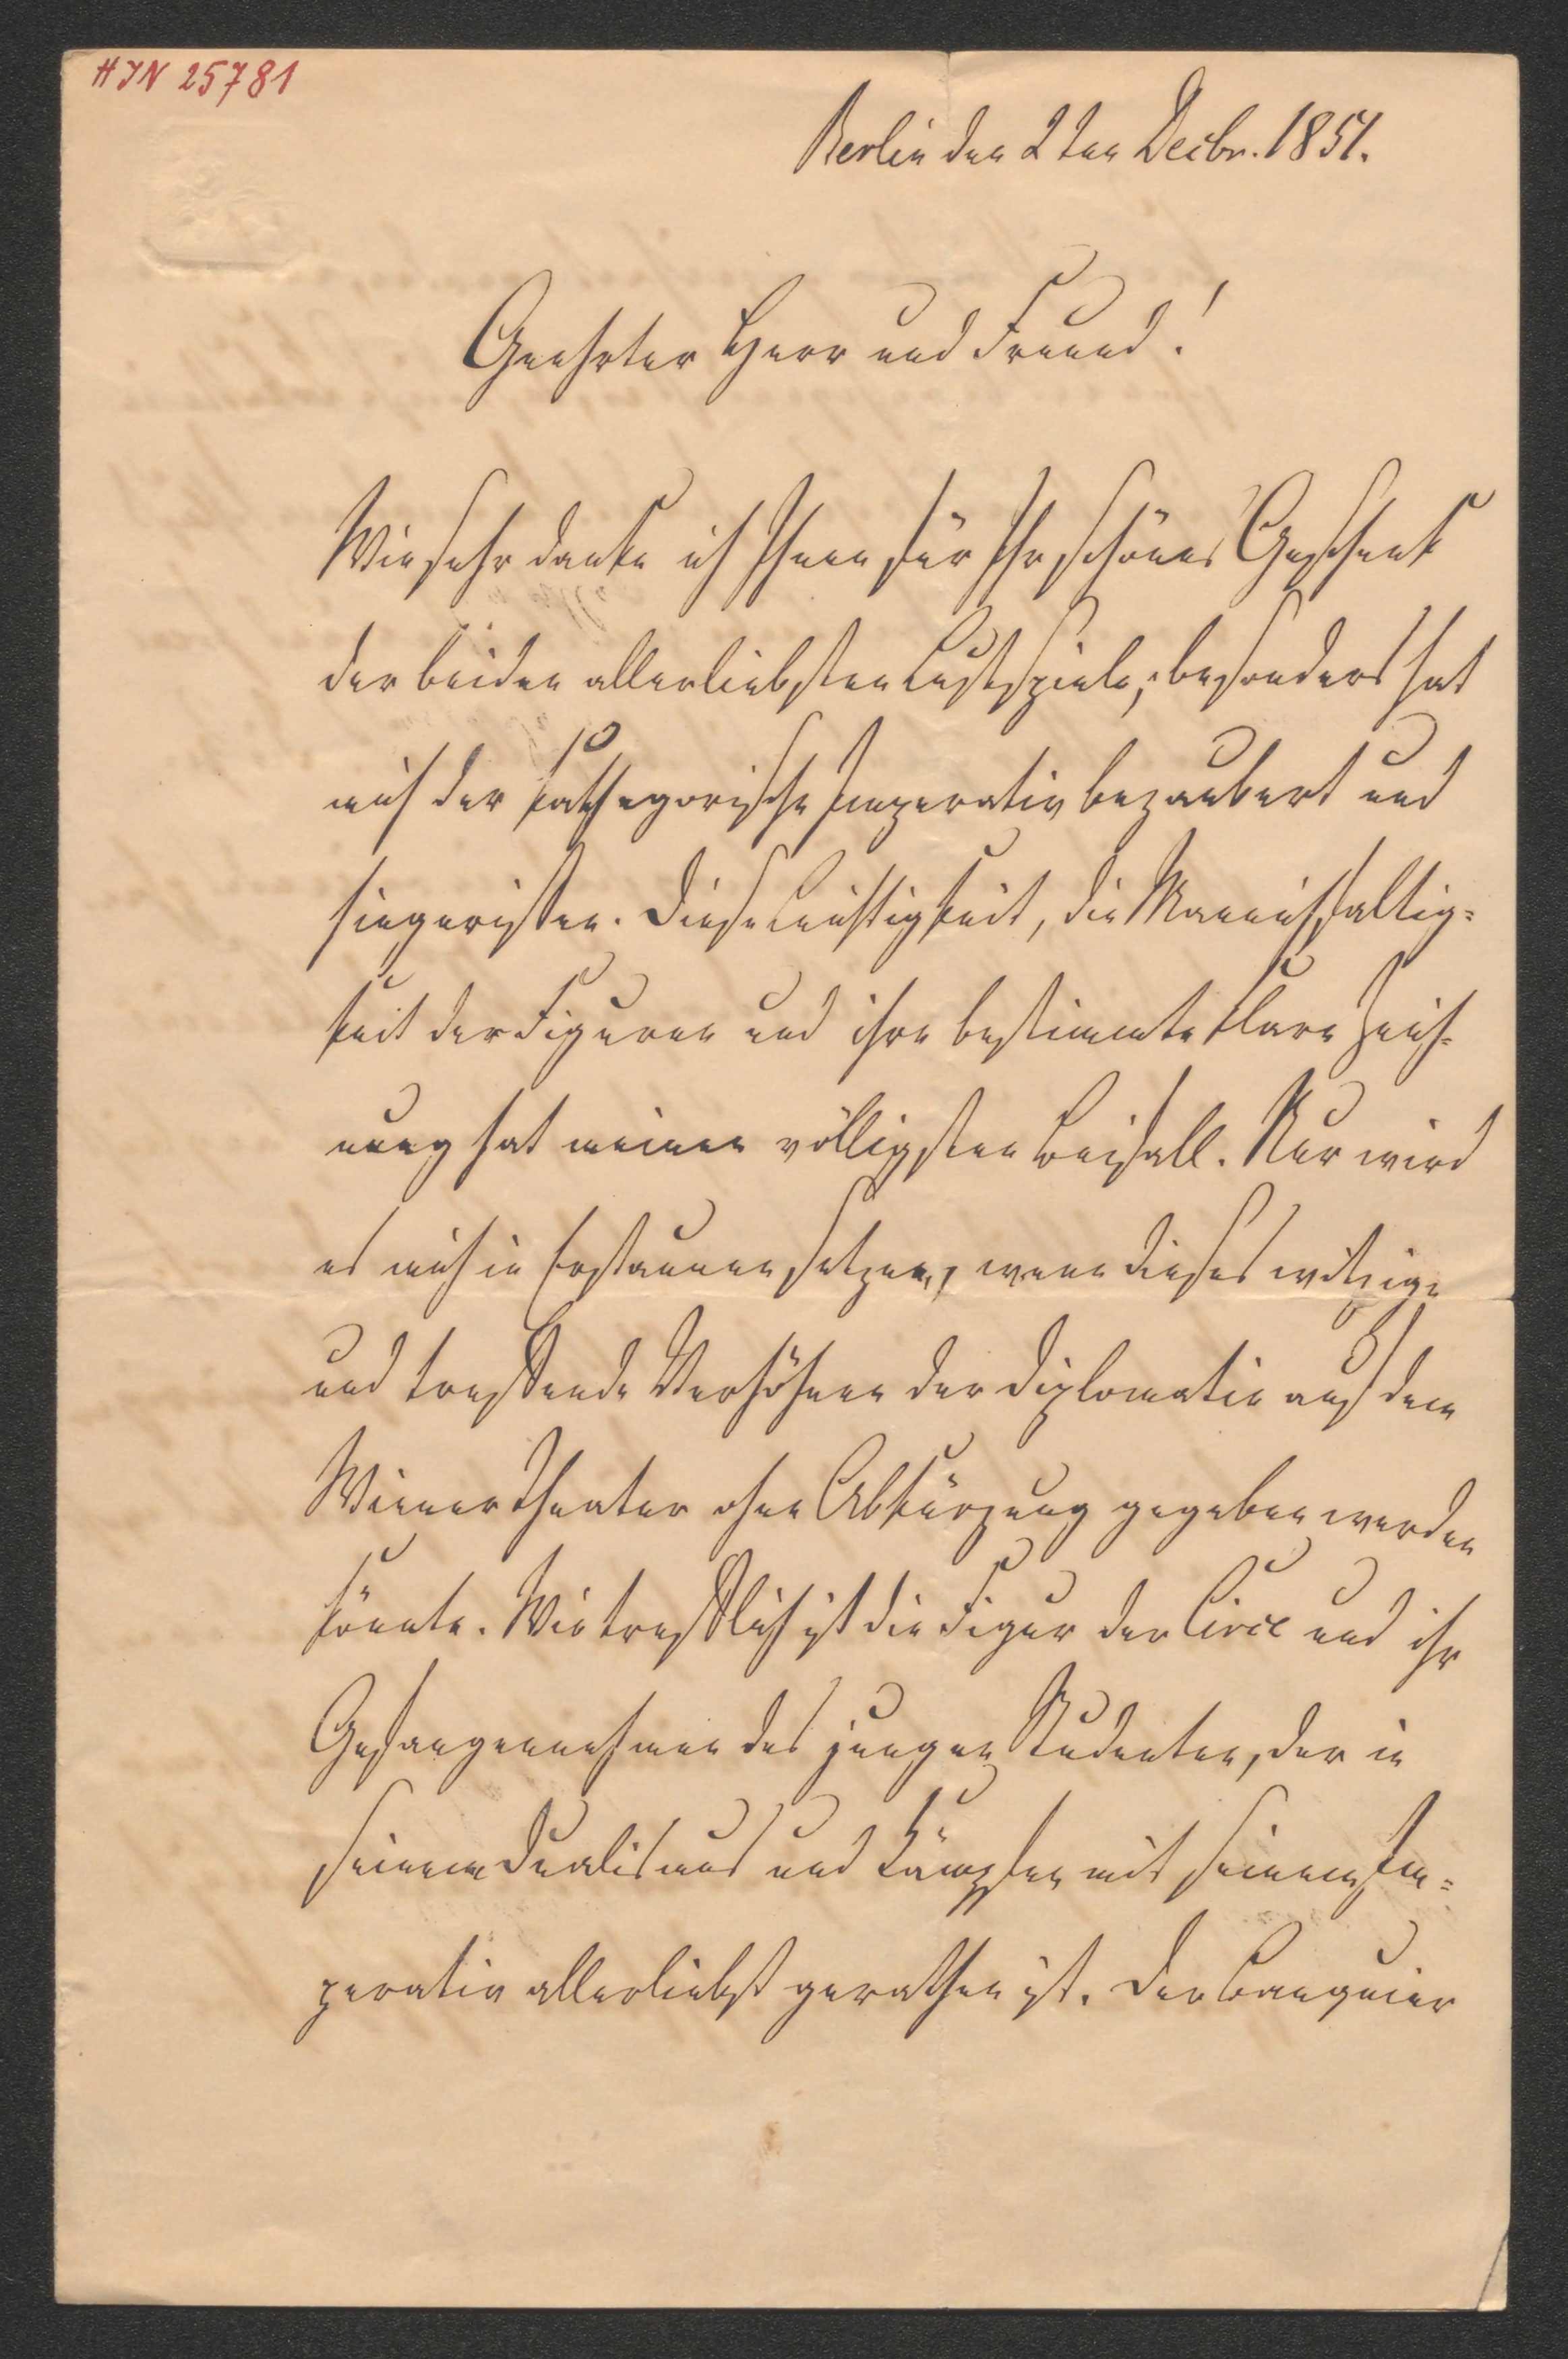 HIN 25781
Berlin den 2ten Decbr. 1851.
Geehrter Herr und Freund!
Wie sehr danke ich Ihnen für Ihr schönes Geschenk
der beiden allerliebsten Lustspiele; besonders hat
mich der kathegorische Imperativ bezaubert und
hingerissen. Diese Leichtigkeit, die Mannichfaltig=
keit der Figuren und ihre bestimmte klare Zeich=
nung hat meinen völligsten Beifall. Nur wird
es mich in Erstaunen setzen, wenn dieses witzige
und treffende Verhöhnen der Diplomatie auf dem
Wiener Theater ohne Abkürzung gegeben werden
könnte. Wie trefflich ist die Figur der Civil und ihr
Gefangennehmen des jungen Studenten, der in
seinem Dualismus und Kämpfen mit seinem Im=
perativ allerliebst gerathen ist. Der Banquier